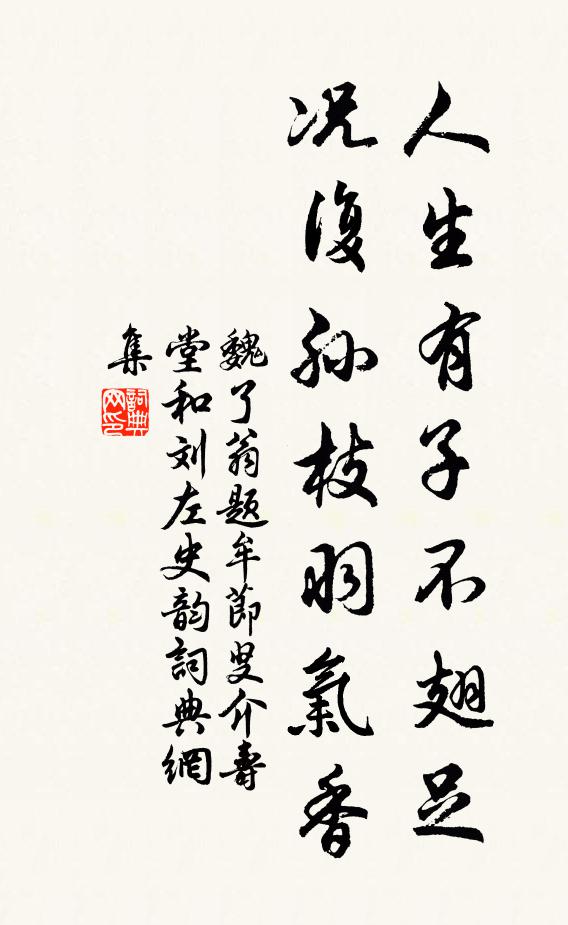 人生有子不翅足
况復孙枝羽氣香
魏了翁题牟節叟介壽
堂和刘左史韵詞典網
集
詞典网印